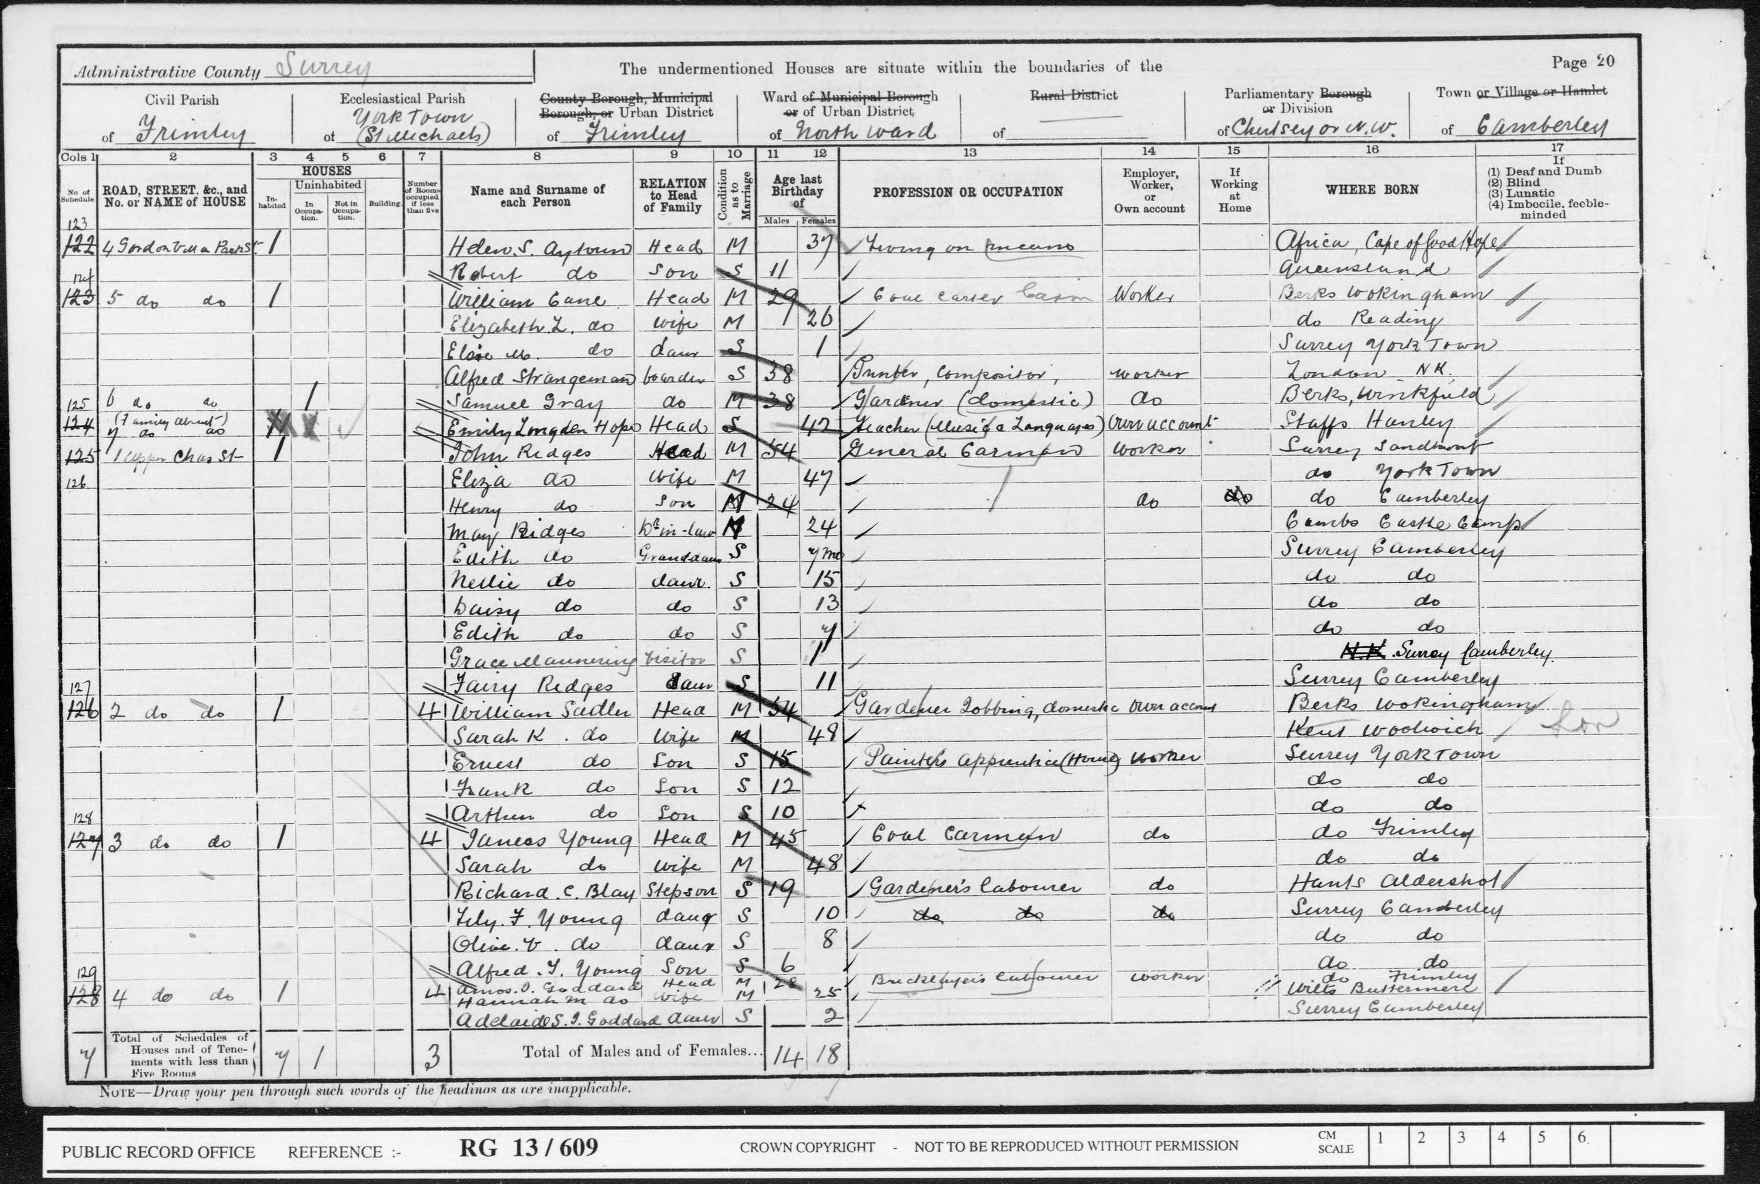 Administrative County Surrey
The undermentioned Houses are situate within the boundaries of the
Page 20
Civil Parish of Frimley
Ecclesiastical Parish of York Town (St Michaels)
County Borough, Municipal Borough, or Urban District of Frimley
Ward of Municipal Borough or of Urban District of North Ward
Rural District of
Parliamentary Borough or Division of Chertsey or N.W.
Town or Village or Hamlet of Camberley
Cols 1 2 3 4 5 6 7 8 9 10 11 12 13 14 15 16 17
No. of Schedule
ROAD, STREET, &c., and No. or NAME of HOUSE
HOUSES
In-habited
Uninhabited
In Occupa-tion.
Not in Occupa-tion.
Building.
Number of Rooms occupied if less than five
Name and Surname of each Person
RELATION to Head of Family
Condition as to Marriage
Age last Birthday of
Males Females
PROFESSION OR OCCUPATION
Employer, Worker, or Own account
If Working at Home
WHERE BORN
If (1) Deaf and Dumb (2) Blind (3) Lunatic (4) Imbecile, feeble-minded
123
122 4 Gordon Villa Park St. 1 Helen. S. Aytoun Head M 37 Living on means Africa, Cape of Good Hope
Robert do Son S 11 Queensland
123 5 do do 1 William Cane Head M 29 Coal carter Worker Berks Wokingham
Elizabeth. L. do Wife M 26 do Reading
Elsie M. do daur S 1 Surrey York Town
Alfred Strangeman boarder S 38 Printer, Compositor, worker London N.K.
125 6 do do 1 Samuel Gray do M 38 Gardner (domestic) do Berks, Winkfield
(Family absent)
124 7 do do Emily Longden Hope Head S 42 Teacher (Music & Languages) Own account Staffs Hanley
125 1 Upper Chas St 1 John Ridges Head M 54 General Carman worker Surrey Sandhurst
126 Eliza do Wife M 47 do York Town
Henry do Son M 24 do do do Camberley
May Ridges Dr-in-law M 24 Cambs Castle Camps
Edith do Granddaur S 7 mo Surrey Camberley
Nellie do daur. S 15 do do
Daisy do do S 13 do do
Edith do do S 7 do do
Grace Mannering Visitor S 1 N.K. Surrey Camberley
127 Fairy Ridges daur S 11 Surrey Camberley
126 2 do do 1 4 William Sadler Head M 54 Gardener Jobbing, domestic own account Berks Wokingham
Sarah K. do Wife M 48 Kent Woolwich
Ernest do Son S 15 Painters apprentice (House) worker Surrey York Town
Frank do Son S 12 do do
128 Arthur do Son S 10 do do
127 3 do do 1 4 James Young Head M 45 Coal Carman do do Frimley
Sarah do Wife M 48 do do
Richard. C. Blay Stepson S 19 Gardener's labourer do Hants Aldershot
Lily. F. Young daur S 10 do do do Surrey Camberley
Olive. V. do daur S 8 do do
129 Alfred. J. Young Son S 6 do do
128 4 do do 1 4 Amos. O. Goddard Head M 28 Bricklayers labourer worker do Frimley
Hannah M do Wife M 25 Wilts Buttermere
Adelaide S. J. Goddard daur S 2 Surrey Camberley
7 Total of Schedules of Houses and of Tene-ments with less than Five Rooms 7 1 3 Total of Males and of Females... 14 18
NOTE—Draw your pen through such words of the headings as are inapplicable.
PUBLIC RECORD OFFICE REFERENCE :- RG 13 / 609 CROWN COPYRIGHT - NOT TO BE REPRODUCED WITHOUT PERMISSION CM SCALE 1 2 3 4 5 6